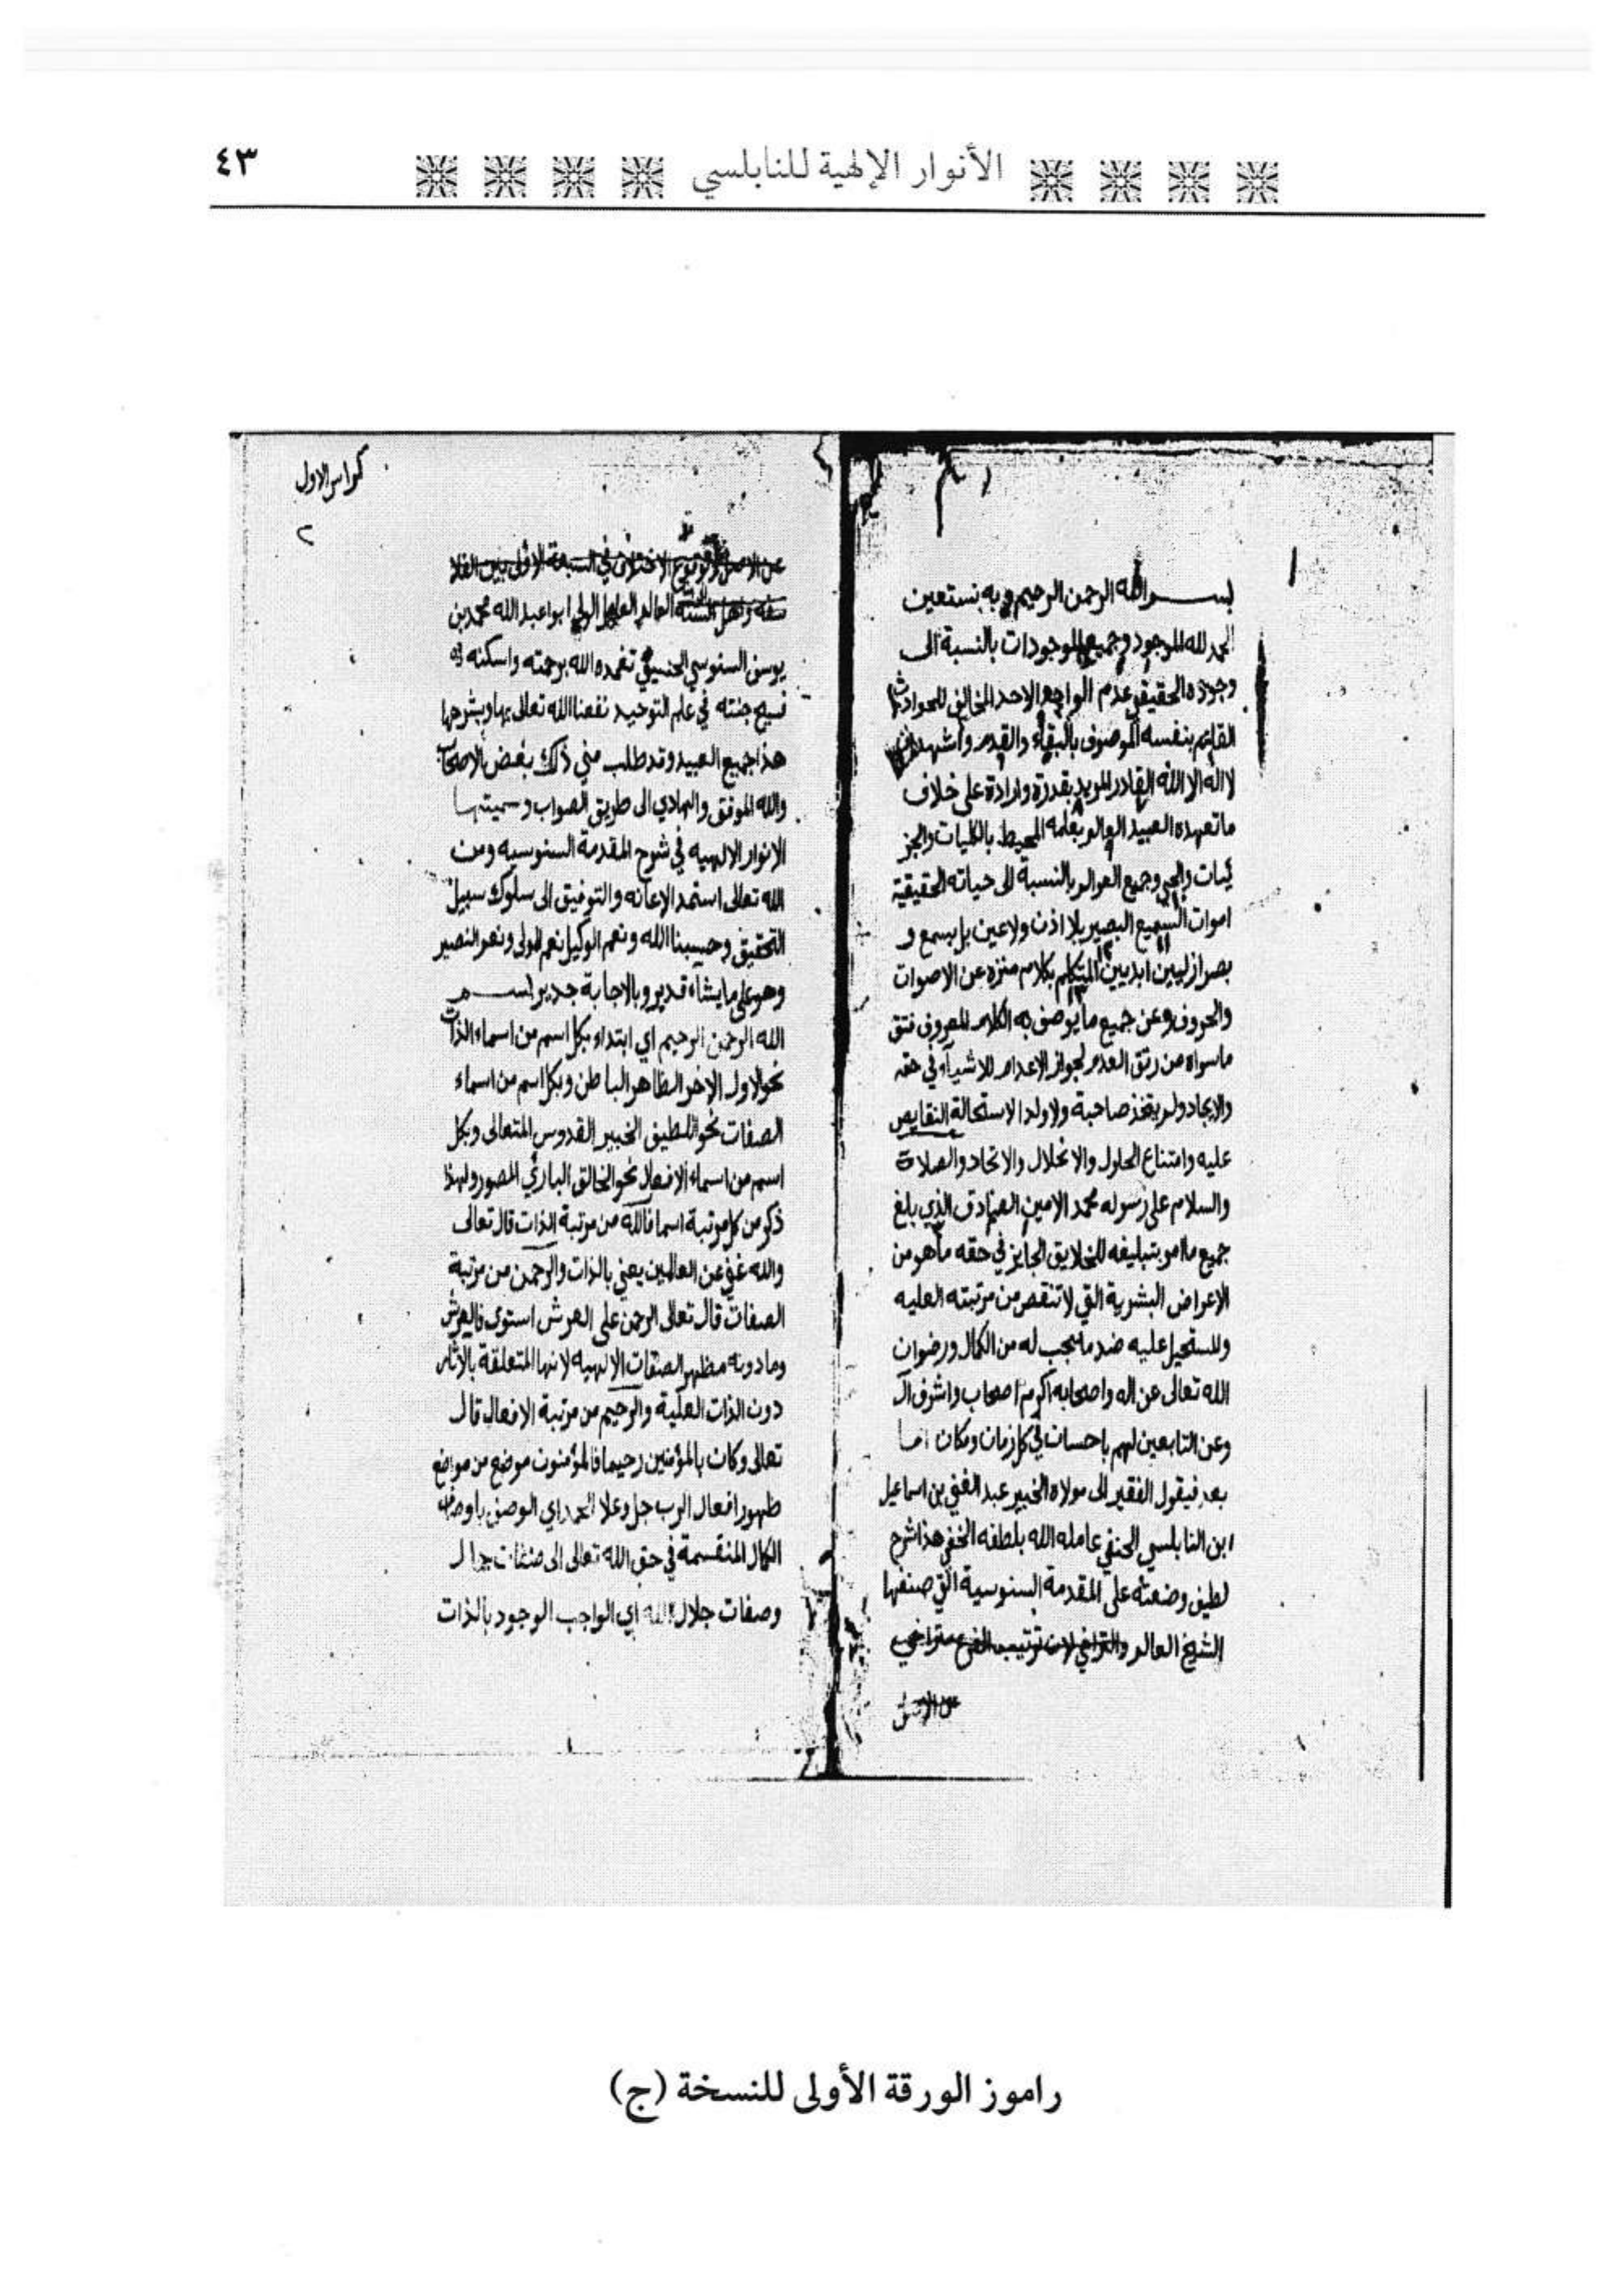 الأنوار الإلهية للنابلسي
٤٣
بسم الله الرحمن الرحيم وبه نستعين
الحمد لله الموجود وجميع الموجودات بالنسبة الى
وجوده الحقيقي عدم الواحد الاحد المخالف للحوادث
القايم بنفسه الموصوف بالبقاء والقدم واشهد ان
لا اله الا الله القادر المريد بقدرة وارادة على خلاف
ما تعهده العبيد العالم بعلمه المحيط بالكليات والجز
ئيات والحي وجميع العوالم بالنسبة الى حياته الحقيقية
اموات السميع البصير بلا اذن ولا عين بل بسمع و
بصر ازليين ابديين المتكلم بكلام منزه عن الاصوات
والحروف وعن جميع ما يوصف به الكلام المعروف فتق
ما سواه من رتق العدم لجواز الاعدام للاشياء في حقه
والايجاد ولم يتخذ صاحبة ولا ولدا لاستحالة النقايص
عليه وامتناع الحلول والانحلال والاتحاد والصلاة
والسلام على رسوله محمد الامين الصادق الذي بلغ
جميع ما امر بتبليغه للخلايق الجايز في حقه ما هو من
الاعراض البشرية التي لا تنقص من مرتبته العليه
والمستحيل عليه ضد ما يجب له من الكمال ورضوان
الله تعالى عن اله واصحابه اكرم اصحاب واشرف آل
وعن التابعين لهم باحسان في كل زمان ومكان اما
بعد فيقول الفقير الى مولاه الخبير عبد الغني بن اسماعيل
ابن النابلسي الحنفي عامله الله بلطفه الخفي هذا شرح
لطيف وضعته على المقدمة السنوسية التي صنفها
الشيخ العالم والتراخي لان ترتيب الفرع متراخي
عن الاصل
كراس الاول
٢
عن الاصل لوقوع الاختلاف في السبعة الاولى بين الفلا
سفه واهل السنة العالم العامل الولي ابو عبد الله محمد بن
يوسف السنوسي الحسني تغمده الله برحمته واسكنه
فسيح جنته في علم التوحيد نفعنا الله تعالى بها وبشرحها
هذا جميع العبيد وقد طلب مني ذلك بعض الاصحاب
والله الموفق والهادي الى طريق الصواب وسميتها
الانوار الالهيه في شرح المقدمة السنوسيه ومن
الله تعالى استمد الاعانه والتوفيق الى سلوك سبيل
التحقيق وحسبنا الله ونعم الوكيل نعم المولى ونعم النصير
وهو على ما يشاء قدير وبالاجابة جدير بسم
الله الرحمن الرحيم اي ابتداء بكل اسم من اسماء الذات
نحو الاول الاخر الظاهر الباطن وبكل اسم من اسماء
الصفات نحو اللطيف الخبير القدوس المتعالى وبكل
اسم من اسماء الافعال نحو الخالق الباري المصور ولهذا
ذكر من كل مرتبة اسما فالله من مرتبة الذات قال تعالى
والله غني عن العالمين يعني بالذات والرحمن من مرتبة
الصفات قال تعالى الرحمن على العرش استوى فالعرش
وما دونه مظهر الصفات الالهيه لانها المتعلقة بالاثار
دون الذات العلية والرحيم من مرتبة الافعال قال
تعالى وكان بالمؤمنين رحيما فالمؤمنون موضع من مواضع
ظهور افعال الرب جل وعلا الحمد اي الوصف باوصاف
الكمال المنقسمة في حق الله تعالى الى صفات جمال
وصفات جلال لله اي الواجب الوجود بالذات
راموز الورقة الأولى للنسخة (ج)